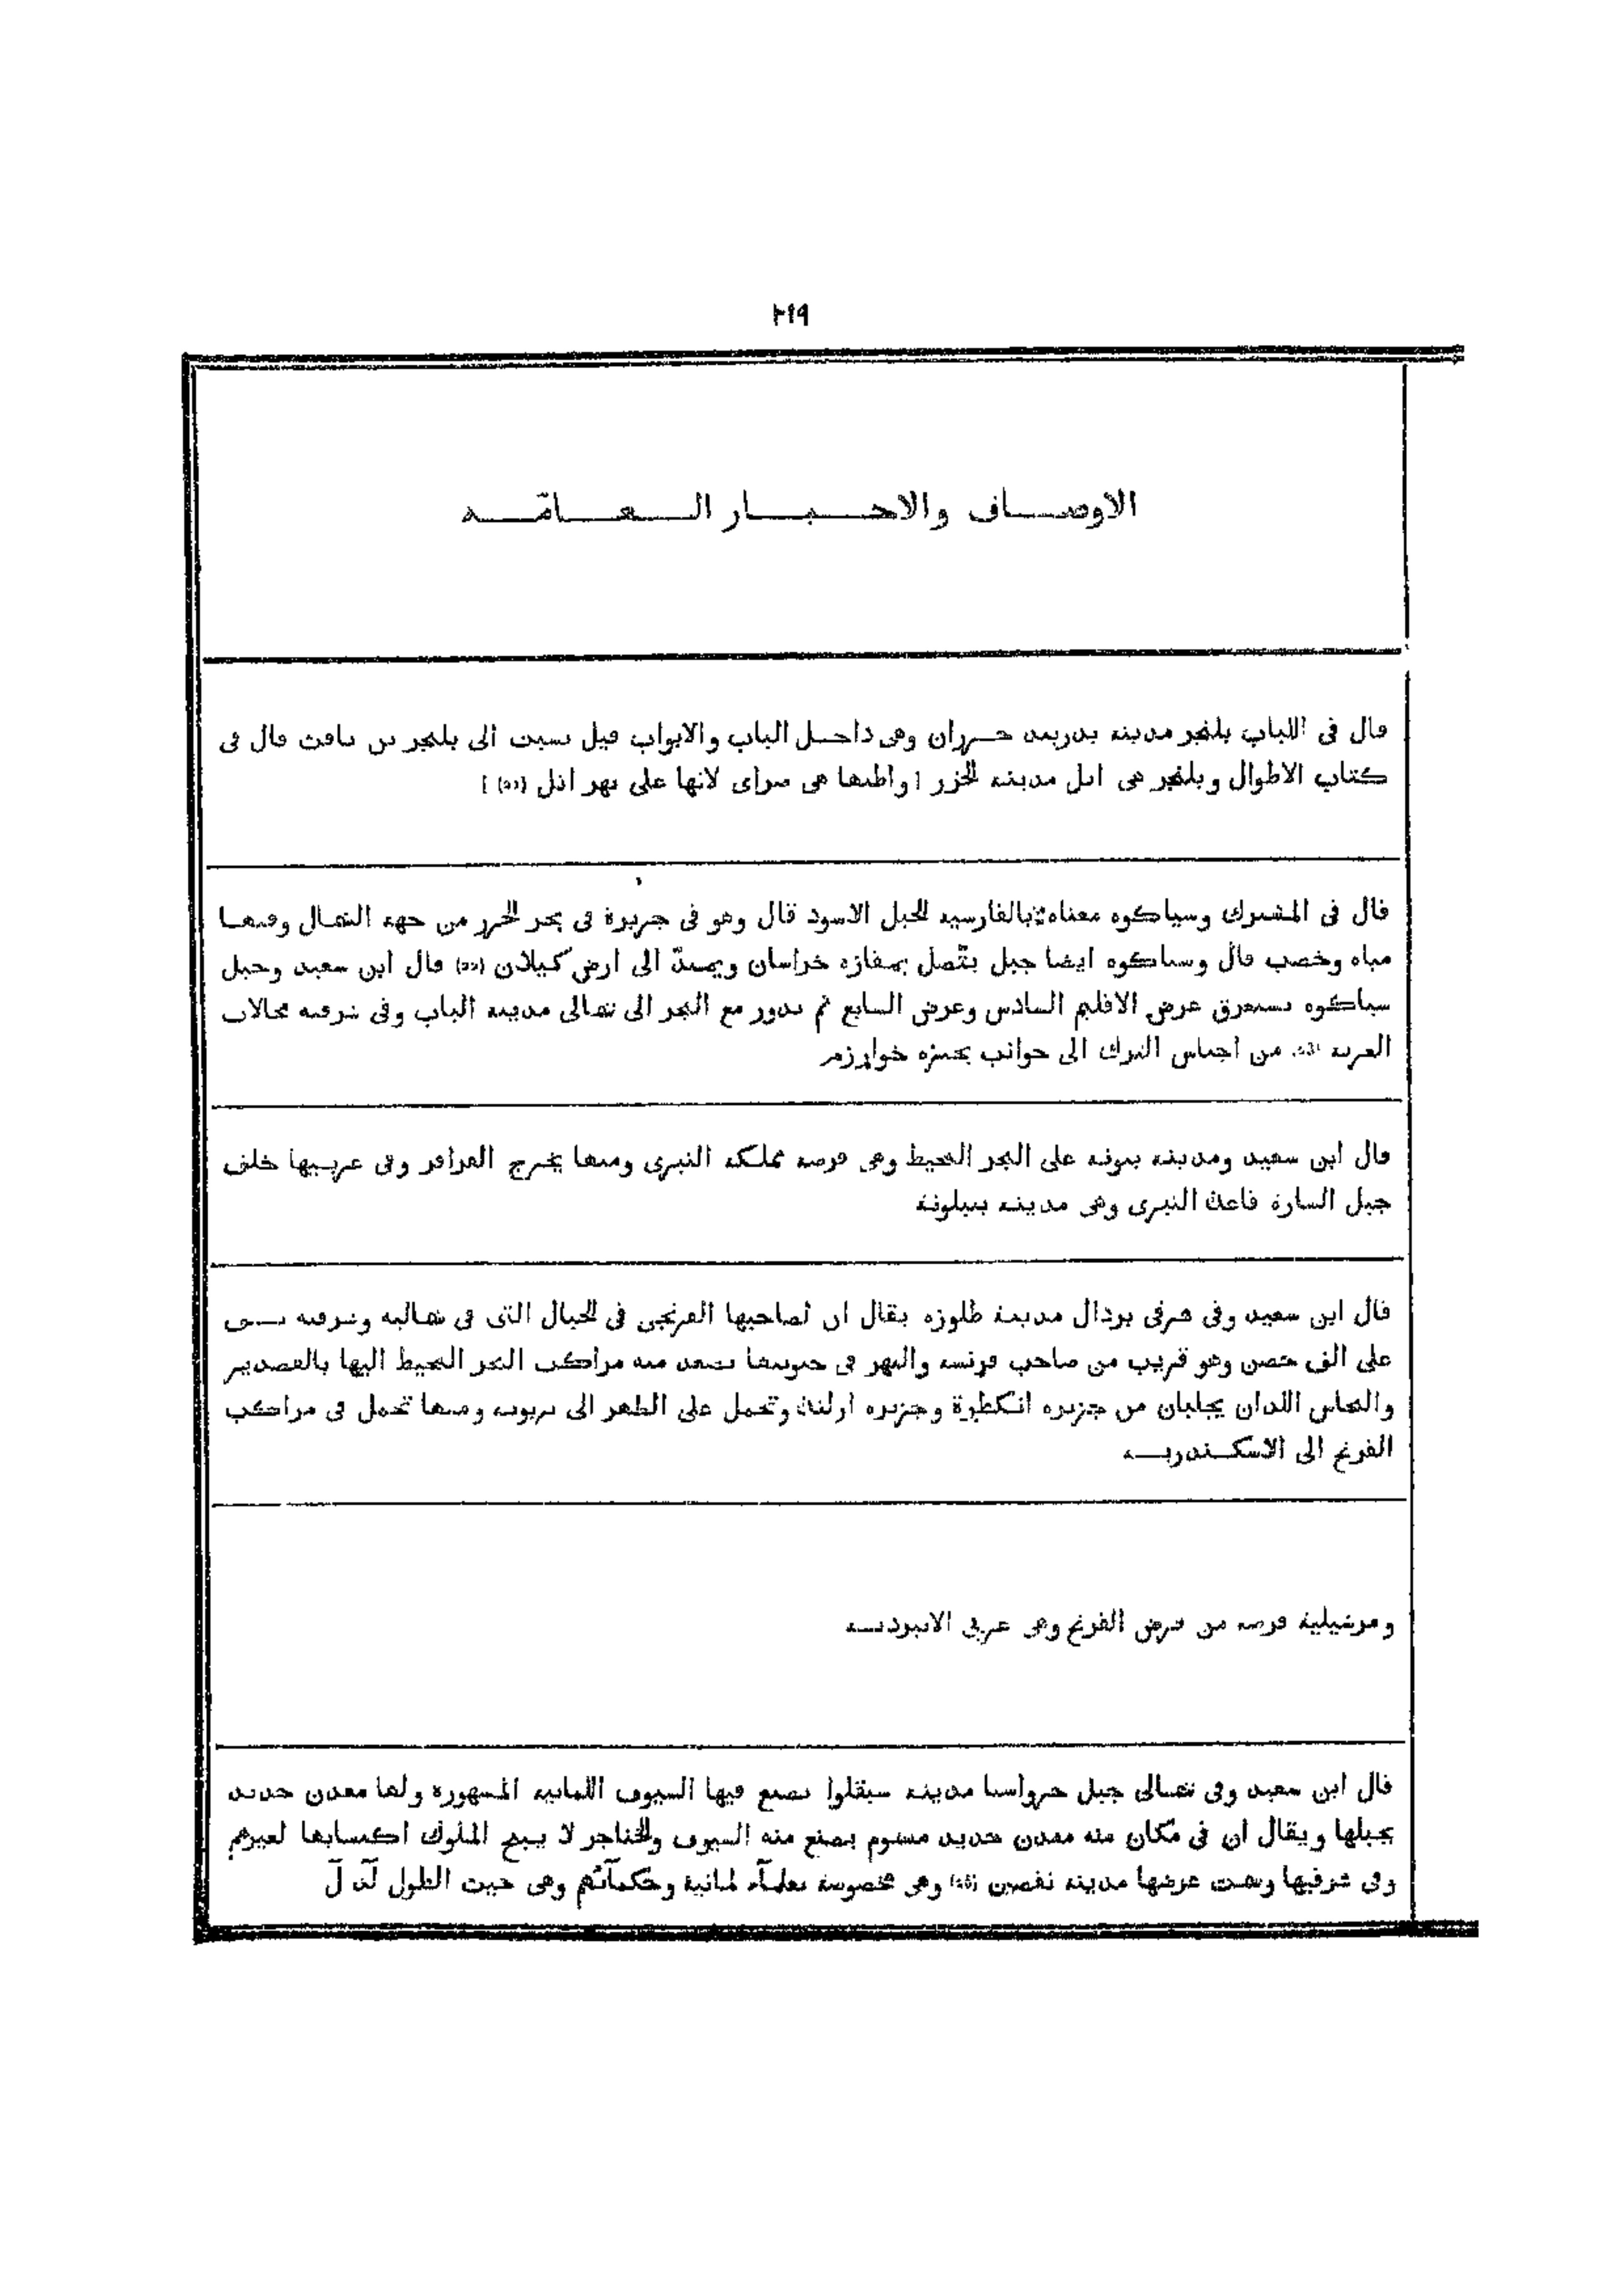 ٢١٩
الاوصاف والاخبار العامّة
قال فى اللباب بلنجر مدينة بدربند خزران وهى داخل الباب والابواب قيل نسبت الى بلنجر بن يافث قال فى
كتاب الاطوال وبلنجر هى اتل مدينة الخزر [واظنها هى صراى لانها على نهر اتل (٥٥)]
قال فى المشترك وسياكوه معناه بالفارسية الجبل الاسود قال وهو فى جزيرة فى بحر الخزر من جهة الشمال وفيها
مياه وخصب قال وسياكوه ايضا جبل يتّصل بمفازة خراسان ويمتدّ الى ارض كيلان (٥٥) قال ابن سعيد وجبل
سياكوه يستغرق عرض الاقليم السادس وعرض السابع ثم يدور مع البحر الى شمالى مدينة الباب وفى شرقيه مجالات
الغزية من اجناس الترك الى جوانب بحيرة خوارزم
قال ابن سعيد ومدينة بيونة على البحر المحيط وهى فرضة مملكة النبرى ومنها يخرج القراقر وفى غربيها خلف
جبل السارة قاعدة النبرى وهى مدينة بنبلونة
قال ابن سعيد وفى شرقى بردال مدينة طلوزة يقال ان لصاحبها الفرنجى فى الجبال التى فى شماليه وشرقيه
على الف حصن وهو قريب من صاحب فرنسة والنهر فى جنوبيها تصعد منه مراكب البحر المحيط اليها بالقصدير
والنحاس اللذان يجلبان من جزيرة انكلطرة وجزيرة ارلندة وتحمل على الظهر الى نربونة ومنها تحمل فى مراكب
الفرنج الى الاسكندرية
ومرشيلية فرضة من فرض الفرنج وهى غربى الانبردية
قال ابن سعيد وفى شمالى جبل جرواسيا مدينة سيقلوا تصنع فيها السيوف اللمانية المشهورة ولها معدن حديد
بجبلها ويقال ان فى مكان منه معدن حديد مسموم يصنع منه السيوف والخناجر لا يبيح الملوك اكتسابها لغيرهم
وفى شرقيها وسمت عرضها مدينة نقصين وهى مخصوصة بعلمآء لمانية وحكمآئهم وهى حيث الطول لد ل